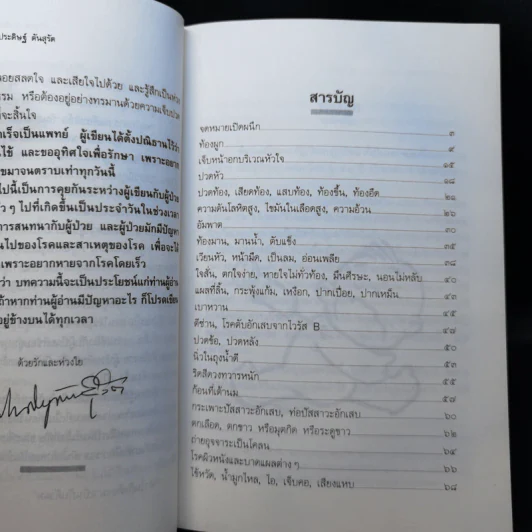 ประดิษฐ์ ตันสุรัต
และเสียใจไปด้วย และรู้สึกเป็นห่วง
หรือต้องอยู่อย่างทรมานด้วยความเจ็บปวด
จะสิ้นใจ
เร็จเป็นแพทย์ ผู้เขียนได้ตั้งปณิธานไว้ว่า
ไข้ และขออุทิศใจเพื่อรักษา เพราะอยาก
มาจนตราบเท่าทุกวันนี้
ไปนี้เป็นการคุยกันระหว่างผู้เขียนกับผู้ป่วย
ๆ ไปที่เกิดขึ้นเป็นประจำวันในช่วงเวลา
การสนทนากับผู้ป่วย และผู้ป่วยมักมีปัญหา
นไปของโรคและสาเหตุของโรค เพื่อจะได้
เพราะอยากหายจากโรคโดยเร็ว
ว่า บทความนี้จะเป็นประโยชน์แก่ท่านผู้อ่าน
ถ้าหากท่านผู้อ่านมีปัญหาอะไร ก็โปรดเขียน
อยู่ข้างบนได้ทุกเวลา
ด้วยรักและห่วงใย
สารบัญ
จดหมายเปิดผนึก ๓
ท้องผูก ๙
เจ็บหน้าอกบริเวณหัวใจ ๑๕
ปวดหัว ๑๘
ปวดท้อง, เสียดท้อง, แสบท้อง, ท้องขึ้น, ท้องอืด ๒๑
ความดันโลหิตสูง, ไขมันในเลือดสูง, ความอ้วน ๒๖
อัมพาต ๓๐
ท้องมาน, มานน้ำ, ตับแข็ง ๓๕
เวียนหัว, หน้ามืด, เป็นลม, อ่อนเพลีย ๓๘
ใจสั่น, ตกใจง่าย, หายใจไม่ทั่วท้อง, มึนศีรษะ, นอนไม่หลับ ๔๐
แผลที่ลิ้น, กระพุ้งแก้ม, เหงือก, ปากเปื่อย, ปากเหม็น ๔๓
เบาหวาน ๔๕
ดีซ่าน, โรคตับอักเสบจากไวรัส B ๔๗
ปวดข้อ, ปวดหลัง ๕๐
นิ่วในถุงน้ำดี ๕๓
ริดสีดวงทวารหนัก ๕๕
ก้อนที่เต้านม ๕๗
กระเพาะปัสสาวะอักเสบ, ท่อปัสสาวะอักเสบ ๖๐
ตกเลือด, ตกขาว หรือมุตกิด หรือระดูขาว ๖๒
ถ่ายอุจจาระเป็นโคลน ๖๔
โรคผิวหนังและบาดแผลต่างๆ ๖๖
ไข้หวัด, น้ำมูกไหล, ไอ, เจ็บคอ, เสียงแหบ ๖๘